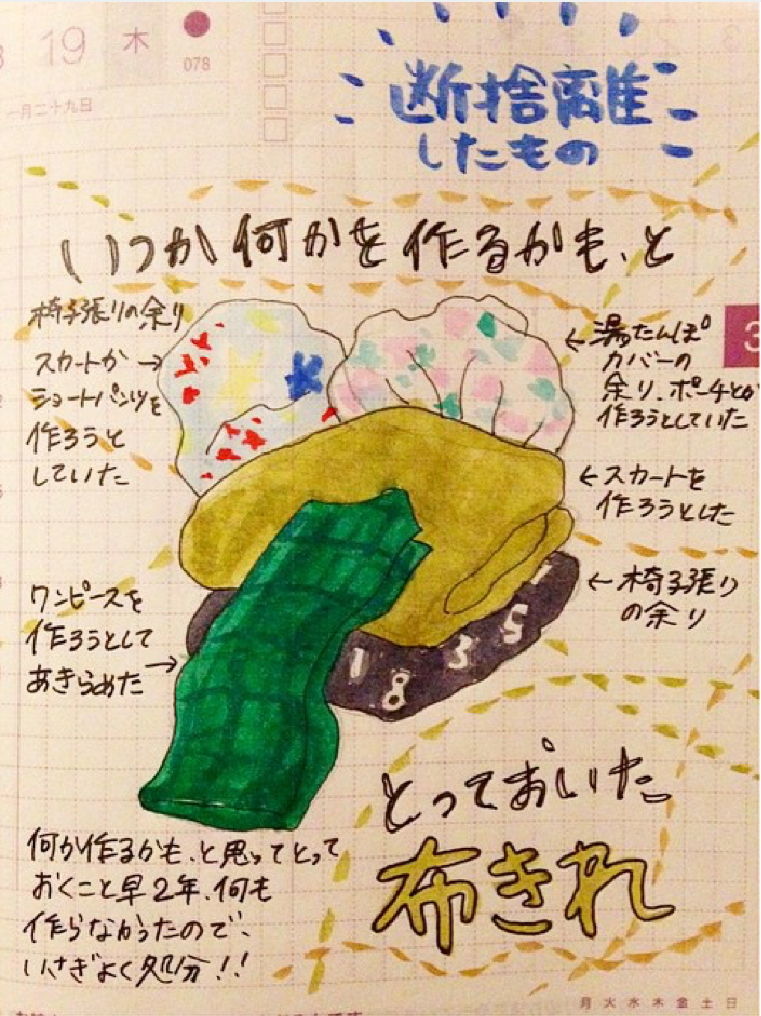 19 木
078
一月二十九日
断捨離
したもの
いつか何かを作るかも、と
椅子張りの余り
スカートか
ショートパンツを
作ろうと
していた
湯たんぽ
カバーの
余り、ポーチとか
作ろうとしていた
スカートを
作ろうとした
椅子張り
の余り
ワンピースを
作ろうとして
あきらめた
3
1 8 3 5 1
とっておいた
布きれ
何か作るかも、と思ってとって
おくこと早2年、何も
作らなかったので、
いさぎよく処分!!
月 火 水 木 金 土 日